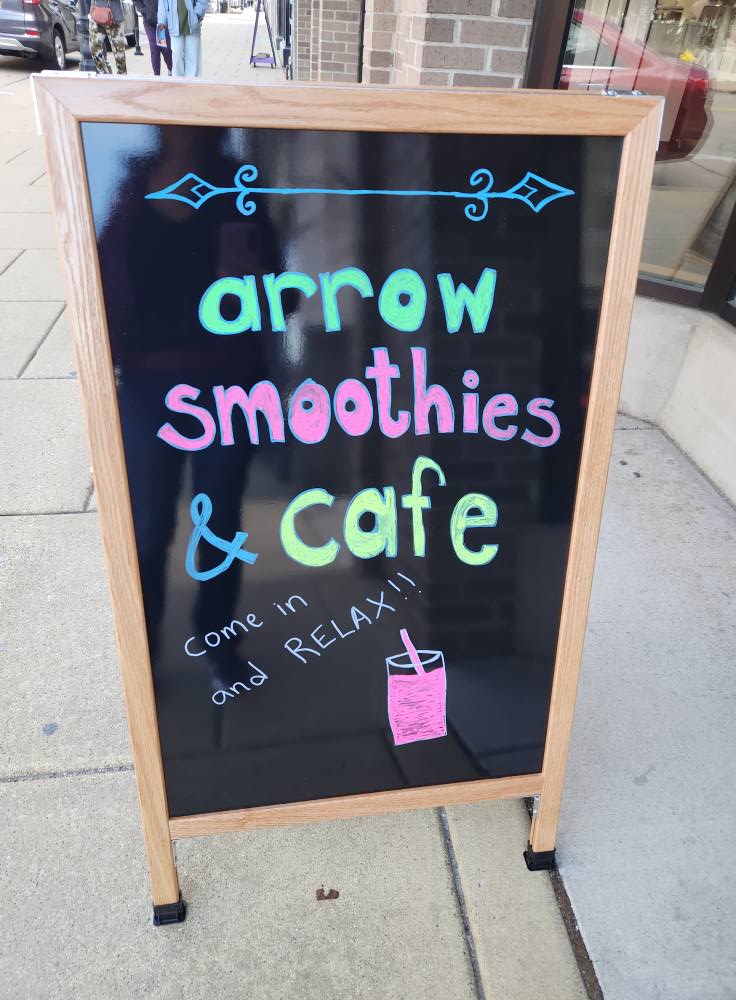 arrow
smoothies
& cafe
come in
and RELAX!!